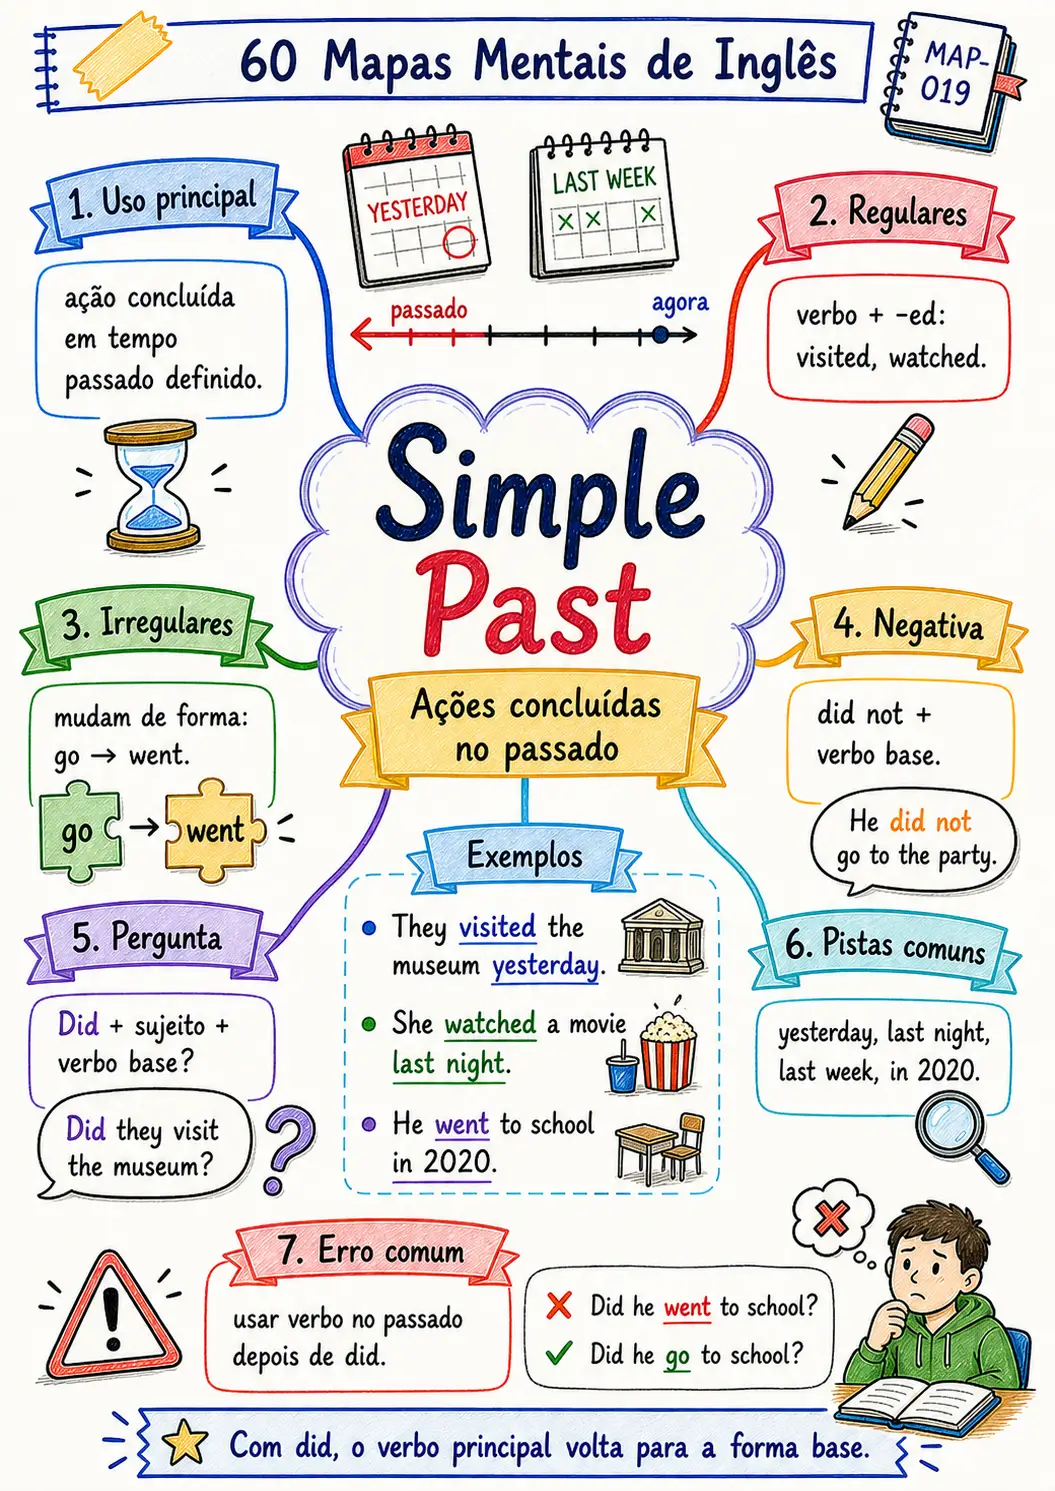 60 Mapas Mentais de Inglês
MAP-
019
YESTERDAY
LAST WEEK
passado
agora
1. Uso principal
ação concluída
em tempo
passado definido.
2. Regulares
verbo + -ed:
visited, watched.
Simple
Past
Ações concluídas
no passado
3. Irregulares
mudam de forma:
go → went.
go → went
4. Negativa
did not +
verbo base.
He did not
go to the party.
Exemplos
They visited the
museum yesterday.
She watched a movie
last night.
He went to school
in 2020.
5. Pergunta
Did + sujeito +
verbo base?
Did they visit
the museum?
6. Pistas comuns
yesterday, last night,
last week, in 2020.
7. Erro comum
usar verbo no passado
depois de did.
Did he went to school?
Did he go to school?
Com did, o verbo principal volta para a forma base.